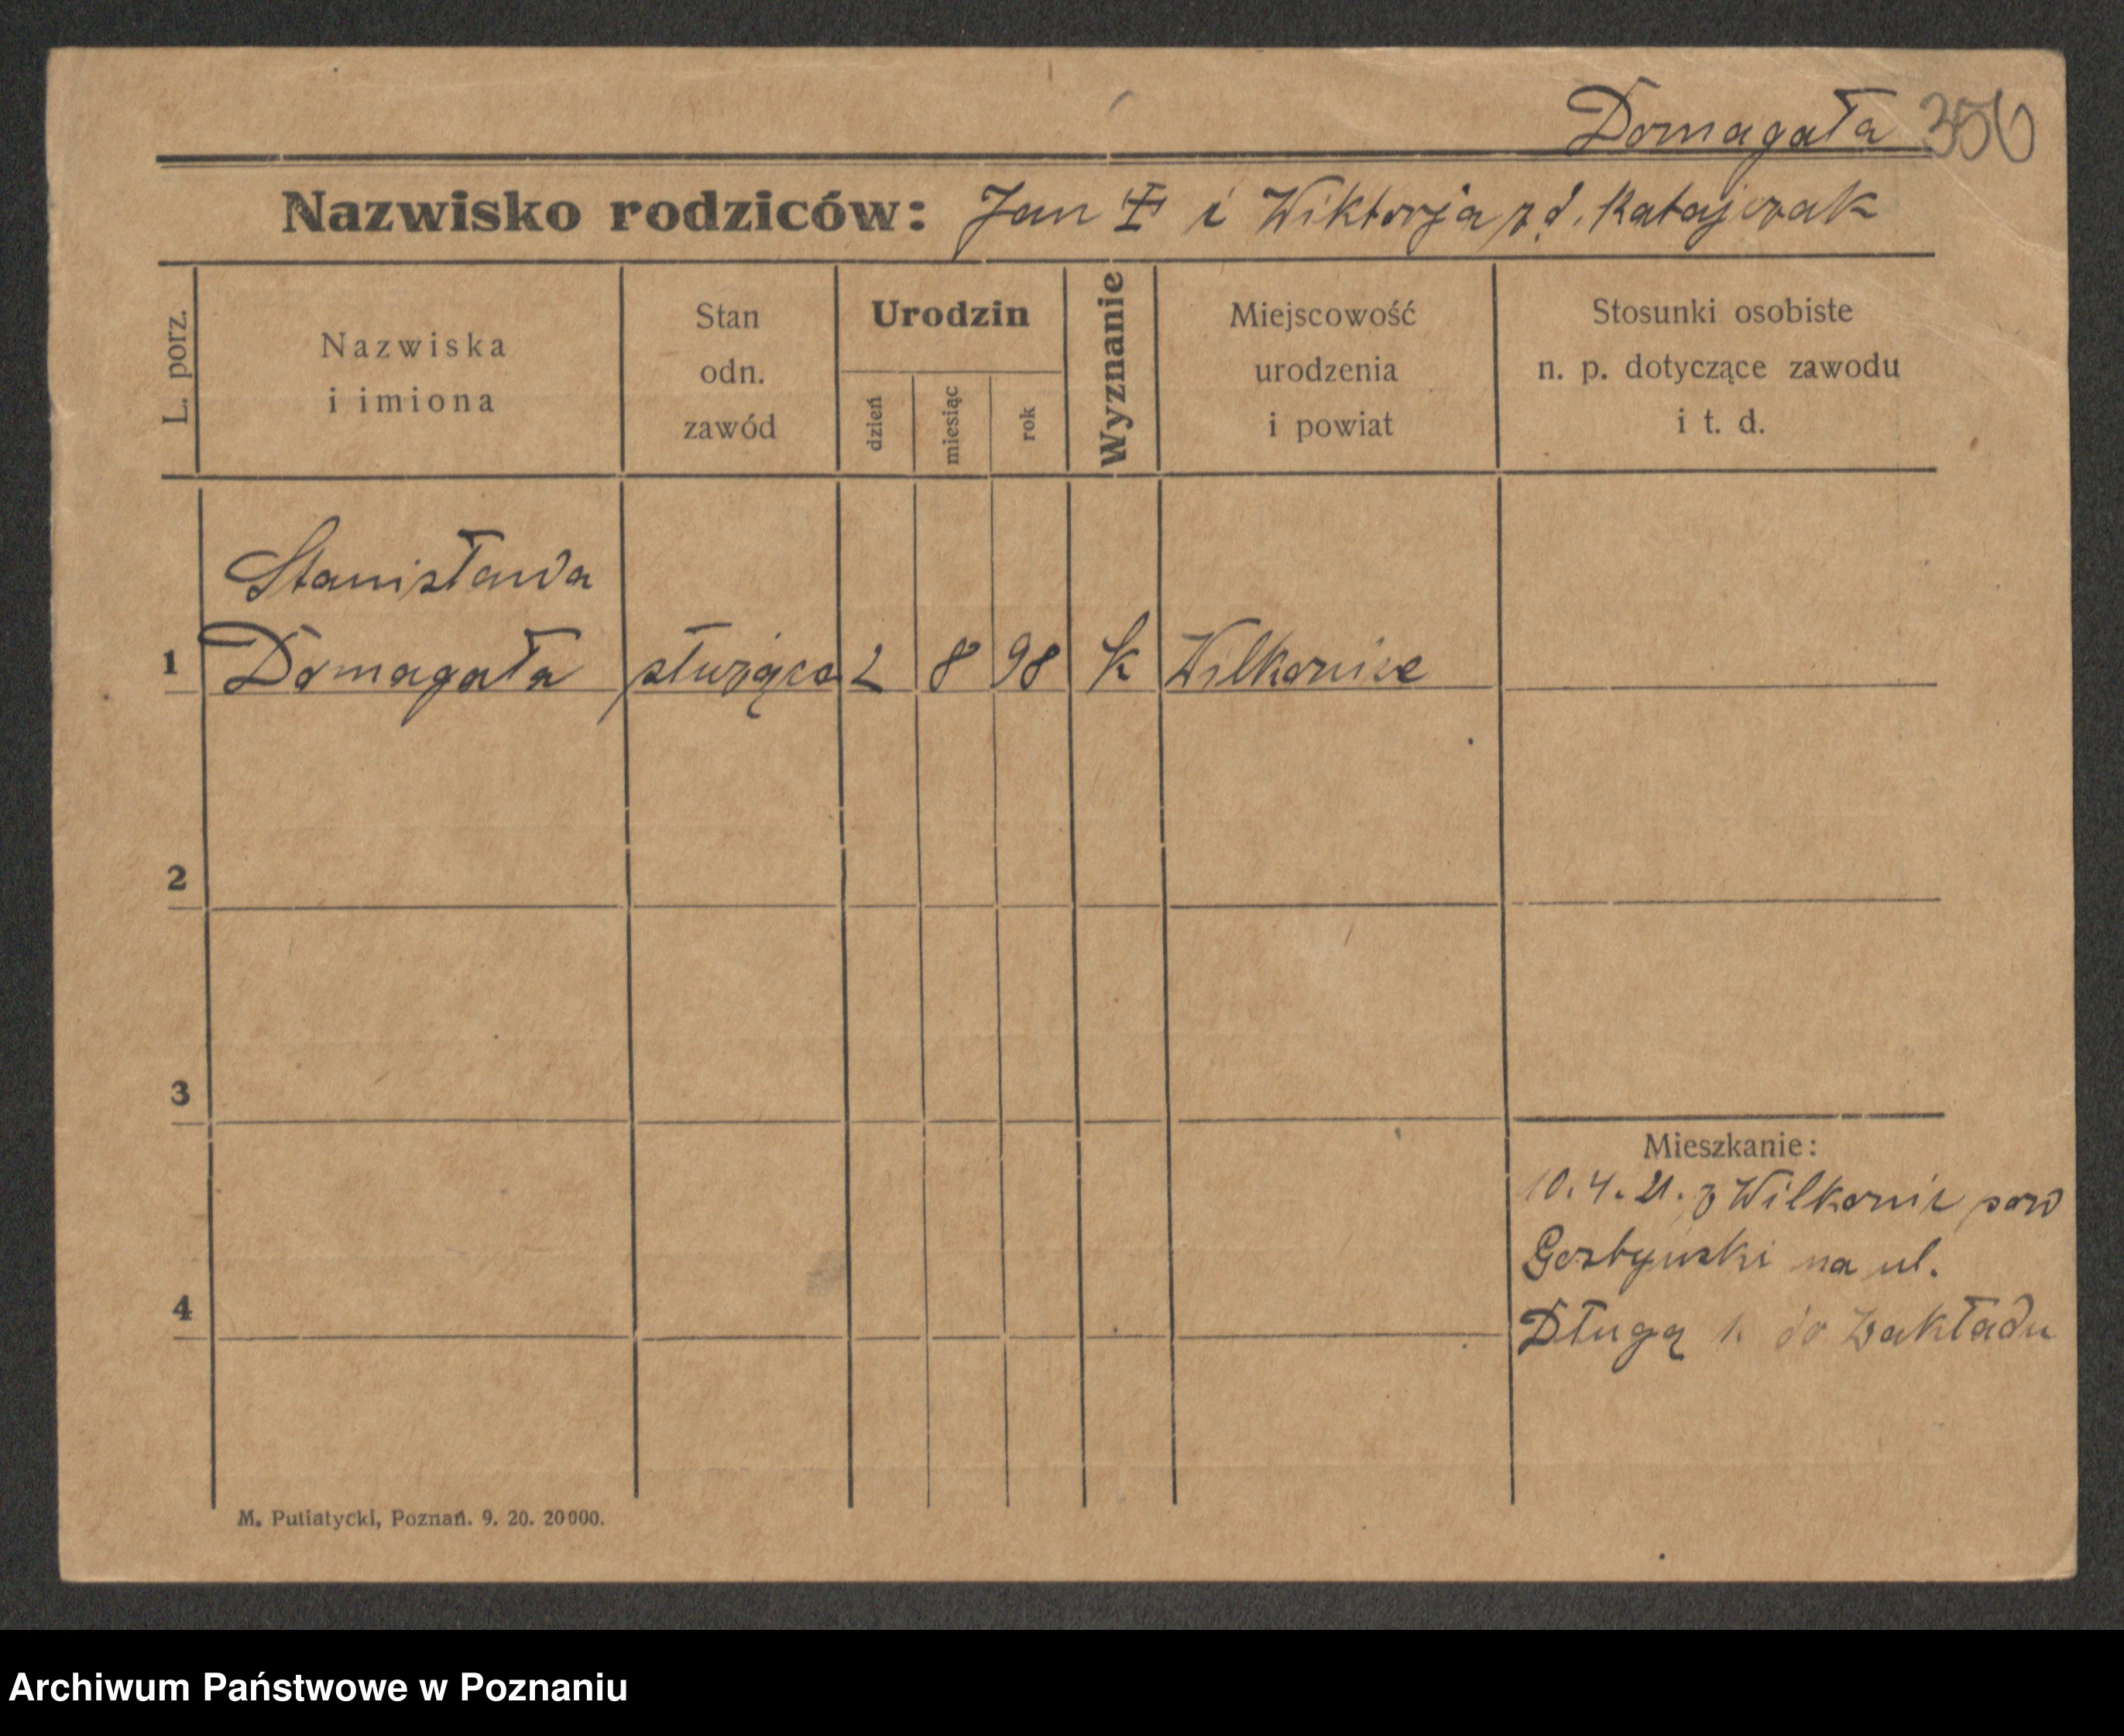 Domagała 356
Nazwisko rodziców: Jan ‡ i Wiktorja z d. Katajczak
L. porz.
Nazwiska
i imiona
Stan
odn.
zawód
Urodzin
dzień
miesiąc
rok
Wyznanie
Miejscowość
urodzenia
i powiat
Stosunki osobiste
n. p. dotyczące zawodu
i t. d.
Stanisława
1 Domagała służąca 2 8 98 k Wilkonice
2
3
Mieszkanie:
10.4.21. z Wilkonic pow
Gostyński na ul.
4
Długą 1. do Zakładu
M. Putiatycki, Poznań. 9. 20. 20000.
Archiwum Państwowe w Poznaniu